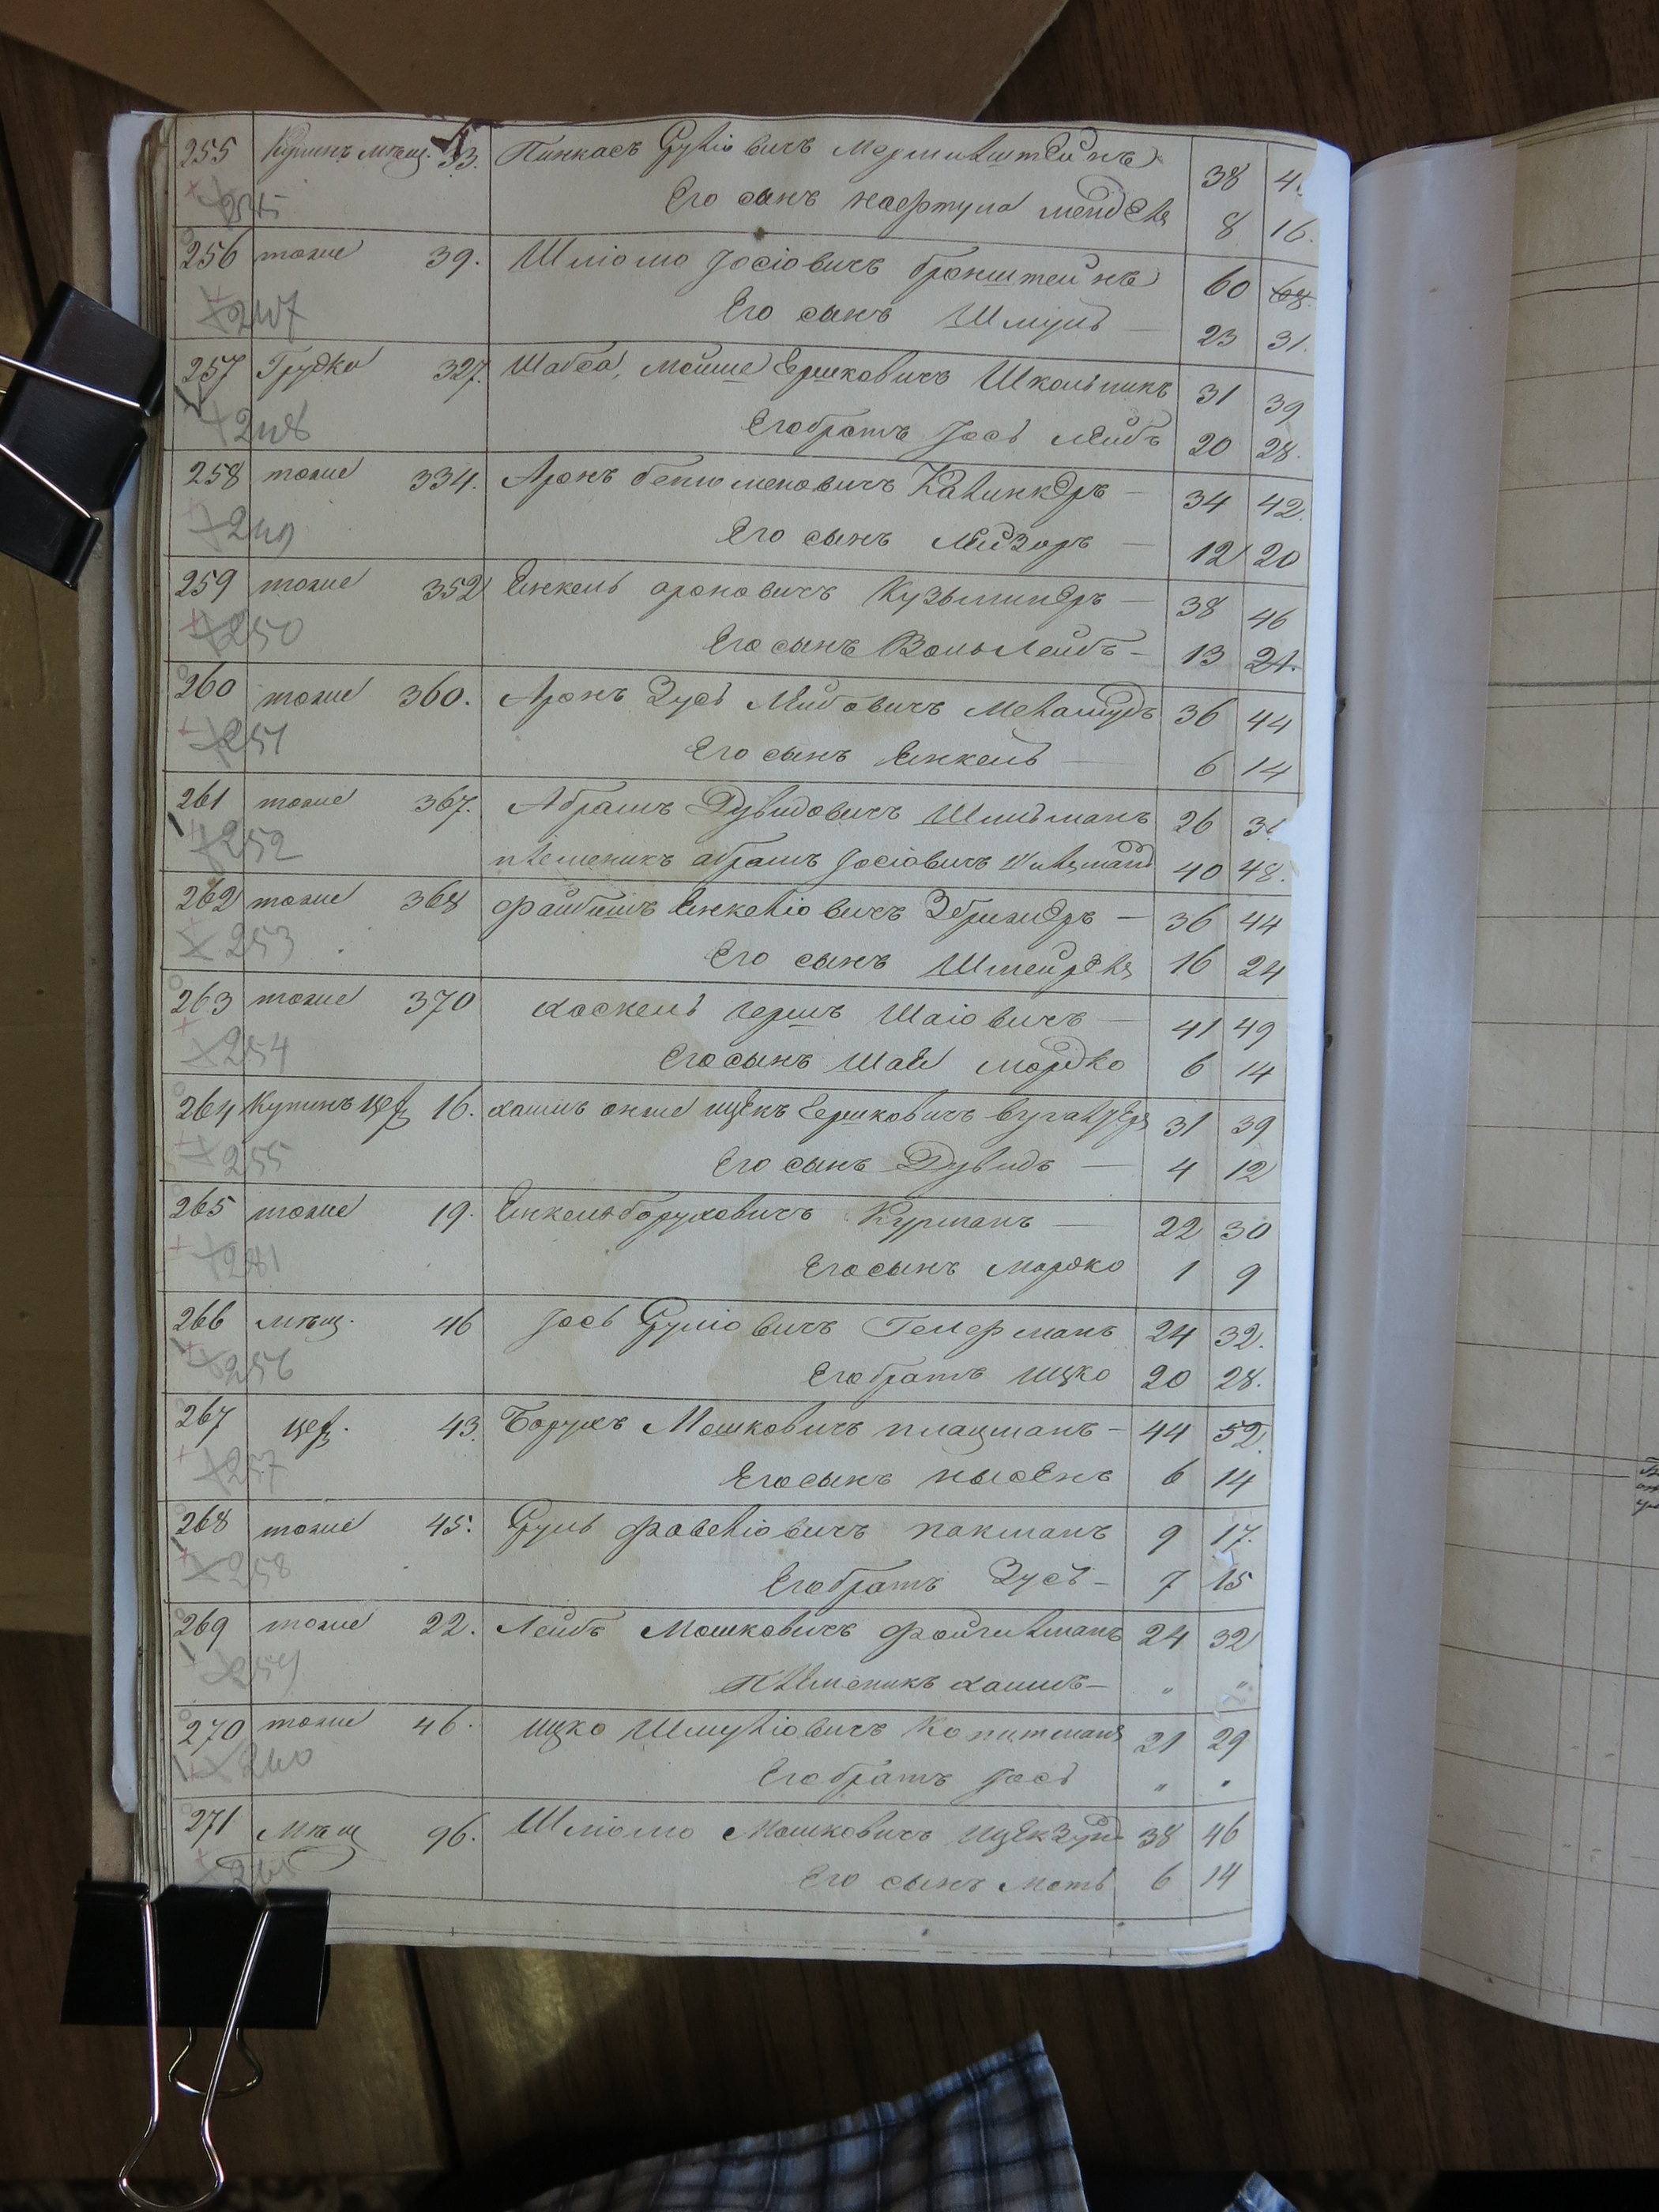 255 Купинъ мѣщ. 33. Пинкасъ Срулiовичъ 38 4
245 Его сынъ Нафтула Мендель 8 16.
256 тоже 39. Шлiомо Iосiовичъ Бронштейнъ 60 68
247 Его сынъ Шмуль — 23 31.
257 Грудка 327. Шабса, Мойше Ершковичъ Школьникъ 31 39
248 Его братъ Iось Лейбъ 20 28.
258 тоже 334. Аронъ Бенюменовичъ — 34 42.
249 Его сынъ Лейзоръ — 12 20
259 тоже 352 Енкель Ароновичъ Кузьминеръ — 38 46
250 Его сынъ Воль Лейбъ — 13 21.
260 тоже 360. Аронъ Зусь Лейбовичъ Меламудъ 36 44
251 Его сынъ Енкель — 6 14
261 тоже 367. Абрамъ Дувидовичъ 26 3
252 племеникъ Абрамъ Iосiовичъ 40 48.
262 тоже 368 Файбишъ Енкелiовичъ — 36 44
253 Его сынъ 16 24
263 тоже 370 Хаскель Гершъ Шаiовичъ — 41 49
254 Его сынъ Шая Мордко 6 14
264 Купинъ цех 16. Хаимъ Ицекъ Ершковичъ 31 39
255 Его сынъ Дувидъ — 4 12
265 тоже 19. Енкель Боруховичъ Курманъ — 22 30
281 Его сынъ Мордко 1 9
266 мѣщ. 46 Iось Срулiовичъ 24 32.
256 Его братъ Ицко 20 28.
267 цех. 43. Борухъ Мошковичъ Плацманъ — 44 52.
257 Его сынъ Нысенъ 6 14
268 тоже 45. Сруль Фавелiовичъ Пакманъ 9 17.
258 Его братъ Зусь — 7 15
269 тоже 22. Лейбъ Мошковичъ Фойгильманъ 24 32
259 Племеникъ Хаимъ — " "
270 тоже 46. Ицко Шмулiовичъ Копитманъ 21 29
260 Его братъ Iось " "
271 Мѣщ 96. Шлiомо Мошковичъ 38 46
Его сынъ Моть 6 14